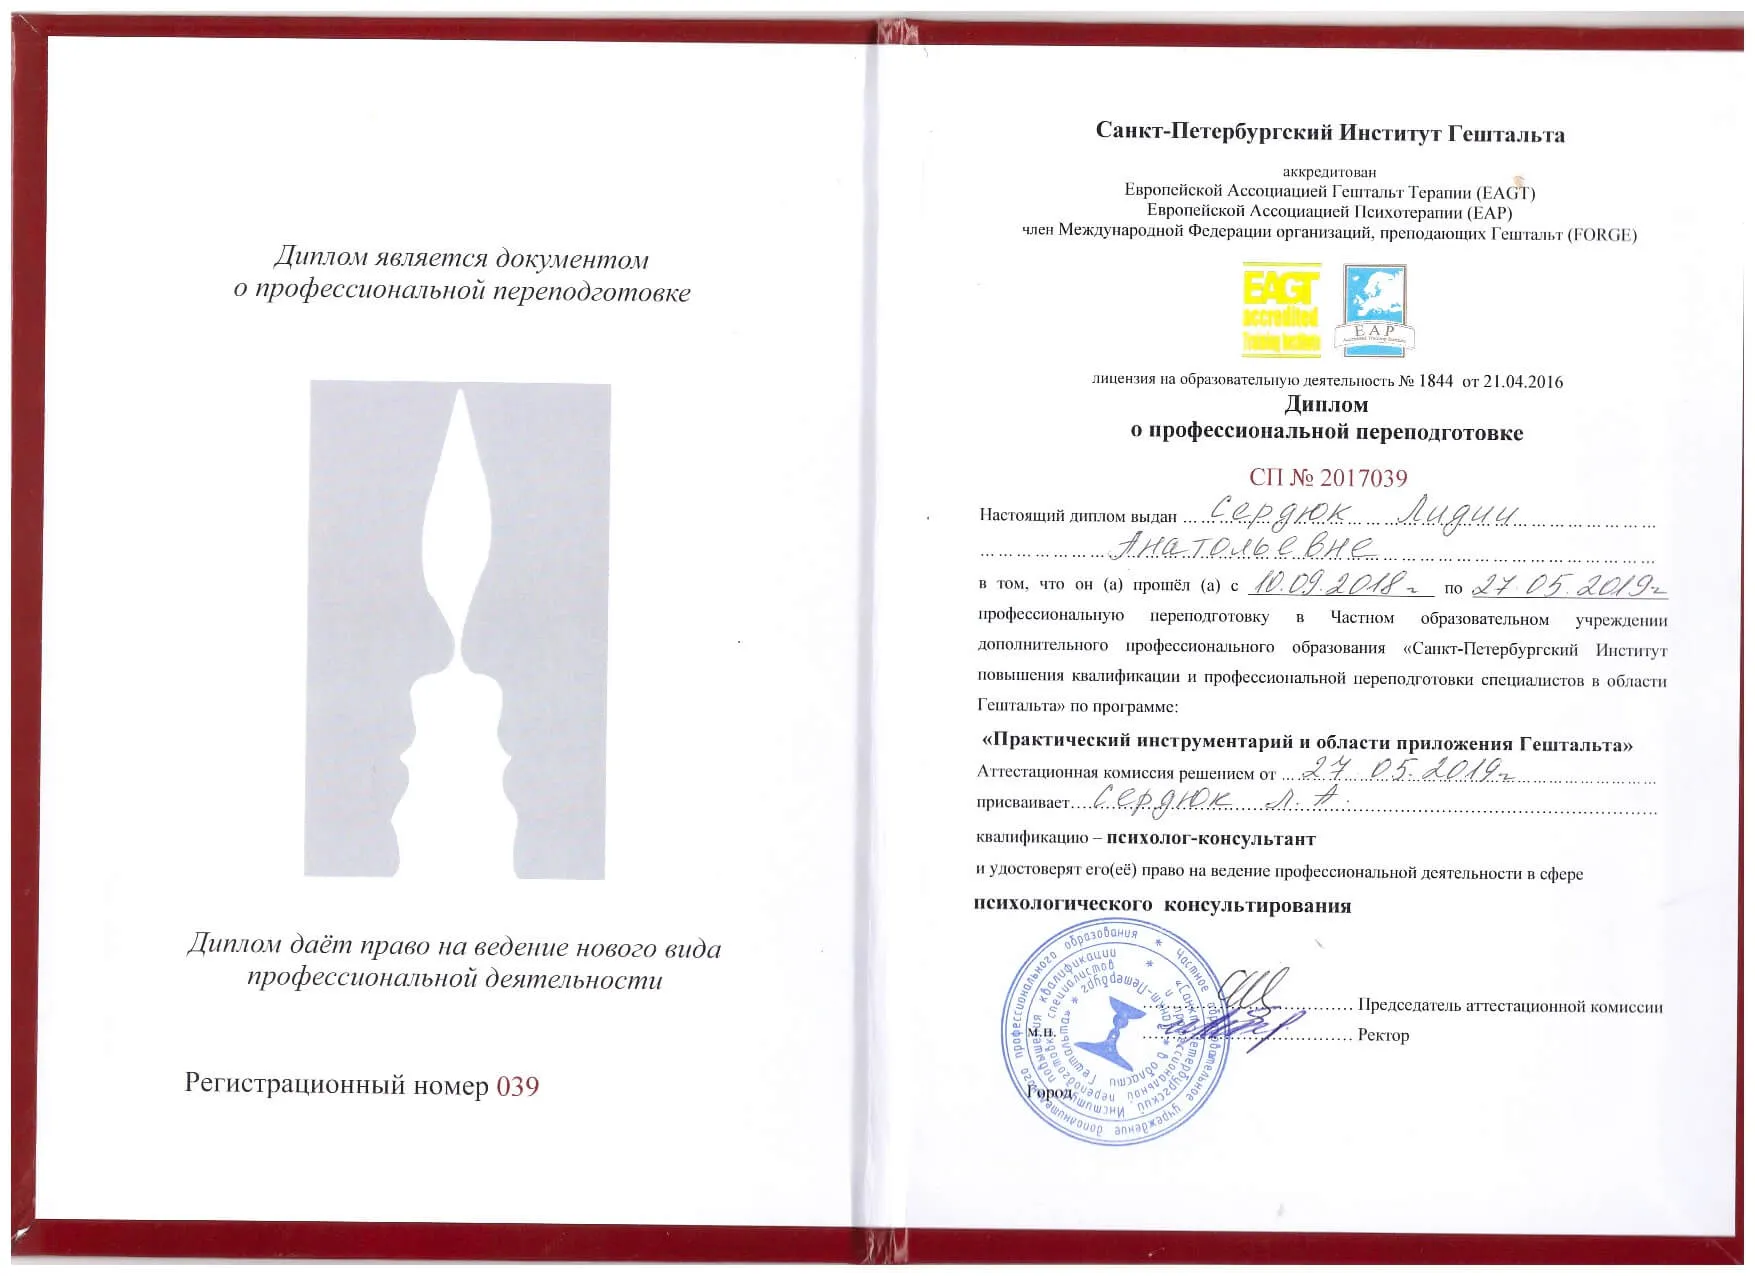 Диплом является документом
о профессиональной переподготовке
Диплом даёт право на ведение нового вида
профессиональной деятельности
Регистрационный номер 039
Санкт-Петербургский Институт Гештальта
аккредитован
Европейской Ассоциацией Гештальт Терапии (EAGT)
Европейской Ассоциацией Психотерапии (EAP)
член Международной Федерации организаций, преподающих Гештальт (FORGE)
EAGT
accredited
Training Institute
EAP
Accredited Training Institute
лицензия на образовательную деятельность № 1844 от 21.04.2016
Диплом
о профессиональной переподготовке
СП № 2017039
Настоящий диплом выдан Сердюк Лидии
Анатольевне
в том, что он (а) прошёл (а) с 10.09.2018г по 27.05.2019г
профессиональную переподготовку в Частном образовательном учреждении
дополнительного профессионального образования «Санкт-Петербургский Институт
повышения квалификации и профессиональной переподготовки специалистов в области
Гештальта» по программе:
«Практический инструментарий и области приложения Гештальта»
Аттестационная комиссия решением от 27 05.2019г
присваивает Сердюк Л.А.
квалификацию – психолог-консультант
и удостоверят его(её) право на ведение профессиональной деятельности в сфере
психологического консультирования
Председатель аттестационной комиссии
м.п.
Ректор
Город
* Частное образовательное учреждение дополнительного профессионального образования
* «Санкт-Петербургский Институт повышения квалификации
и профессиональной переподготовки специалистов
в области Гештальта» * Санкт-Петербург *